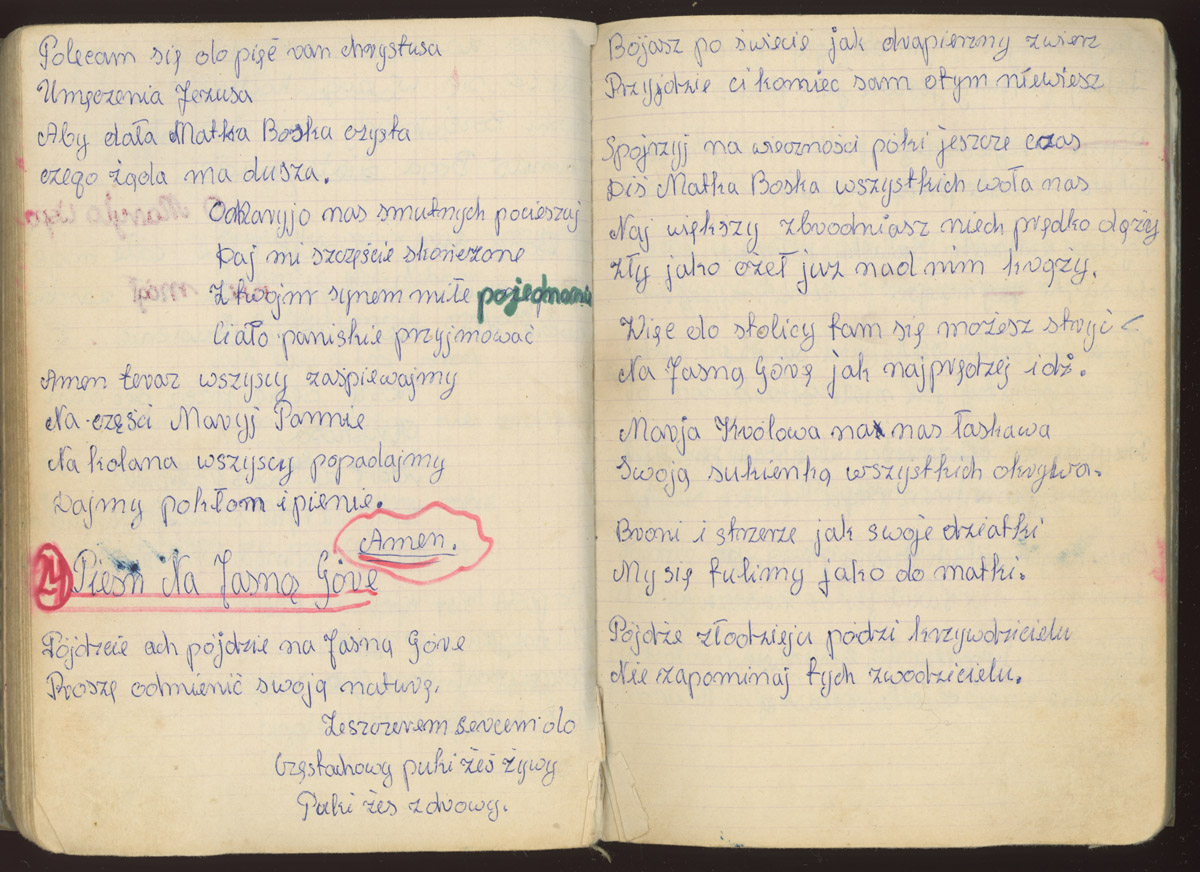 Polecam się do pięć ran chrystusa
Umęczenia Jezusa
Aby dała Matka Boska czysta
czego żąda ma dusza.
OdMaryjo nas smutnych pocieszaj
Daj mi szczęście skończone
Z twojmr synem miłe pojednania
Ciało paniskie przyjmować
Amen teraz wszyscy zaśpiewajmy
Na części Maryj Pannie
Na kolana wszyscy popadajmy
Dajmy pokłom i pienie.
Amen.
24 Pieśń Na Jasną Górę
Pójdzcie ach pójdzie na Jasną Górę
Proszę odmienić swoją naturę.
Zeszczerem sercem do
Częstachowy puki żeś żywy
Puki żeś zdrowy.
Bojasz po świecie jak drapierzny zwierz
Przyjdzie ci komiec sam otym niewiesz
Spojrzyj na wieczności póki jeszcze czas
Diś Matka Boska wszystkich woła nas
Naj większy zbrodniasz niech prędko dężej
Zły jako ożeł juz nad nim krąży.
Więc do stolicy tam się możesz stryć
Na Jasną Górę jak najprędzej idź.
Marja Królowa na nas łaskawa
Swoją sukienką wszystkich okrywa.
Broni i strzerze jak swoje dziatki
My się tulimy jako do matki.
Pojdźe złodzieju pódzi krzywdzicielu
Nie zapominaj tych zwodzicielu.